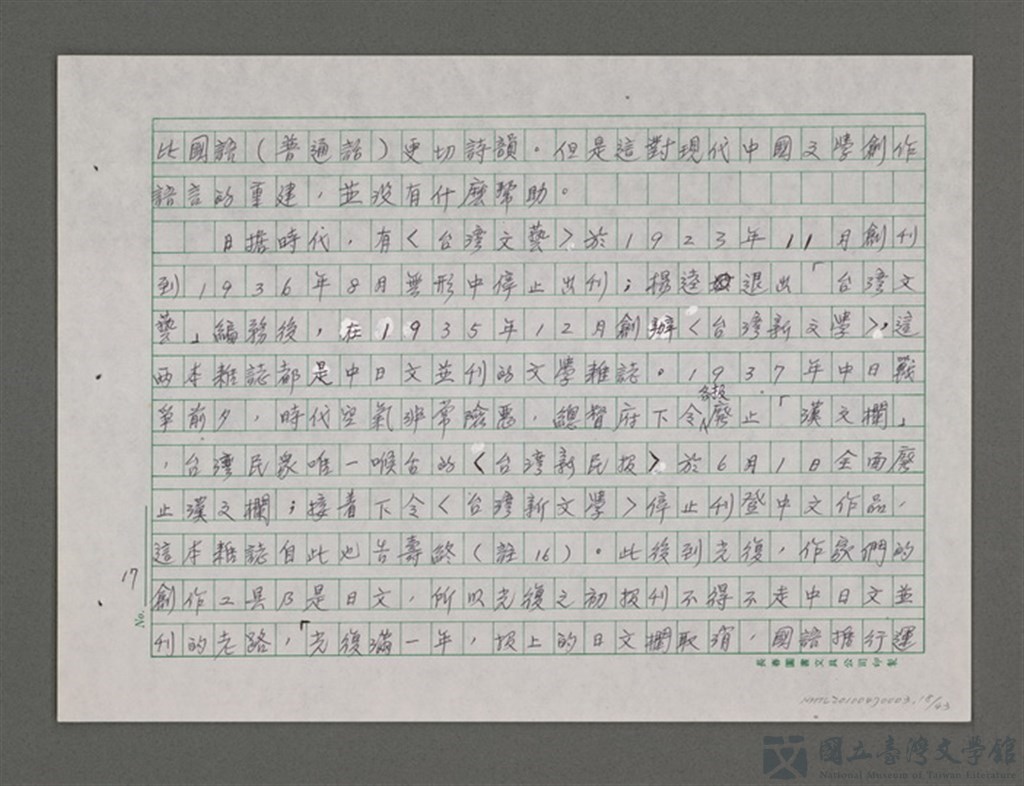 比國語(普通話)更切詩韻。但是這對現代中國文學創作
語言的重建，並沒有什麼幫助。
日據時代，有〈台灣文藝〉於1923年11月創刊
到1936年8月無形中停止出刊；楊逵退出「台灣文
藝」編務後，在1935年12月創辦〈台灣新文學〉，這
兩本雜誌都是中日文並刊的文學雜誌。1937年中日戰
爭前夕，時代空氣非常險惡，總督府下令各報廢止「漢文欄」
，台灣民眾唯一喉舌的〈台灣新民报〉於6月1日全面廢
止漢文欄；接着下令〈台灣新文學〉停止刊登中文作品，
這本雜誌自此也告壽終(註16)。此後到光復，作家們的
創作工具是日文，所以光復之初报刊不得不走中日文並
刊的老路，「光復滿一年，报上的日文欄取消，國語推行運
17
No.
長春圖書文具公司印製
NMTL20100470003.18/43
國立臺灣文學館
National Museum of Taiwan Literature